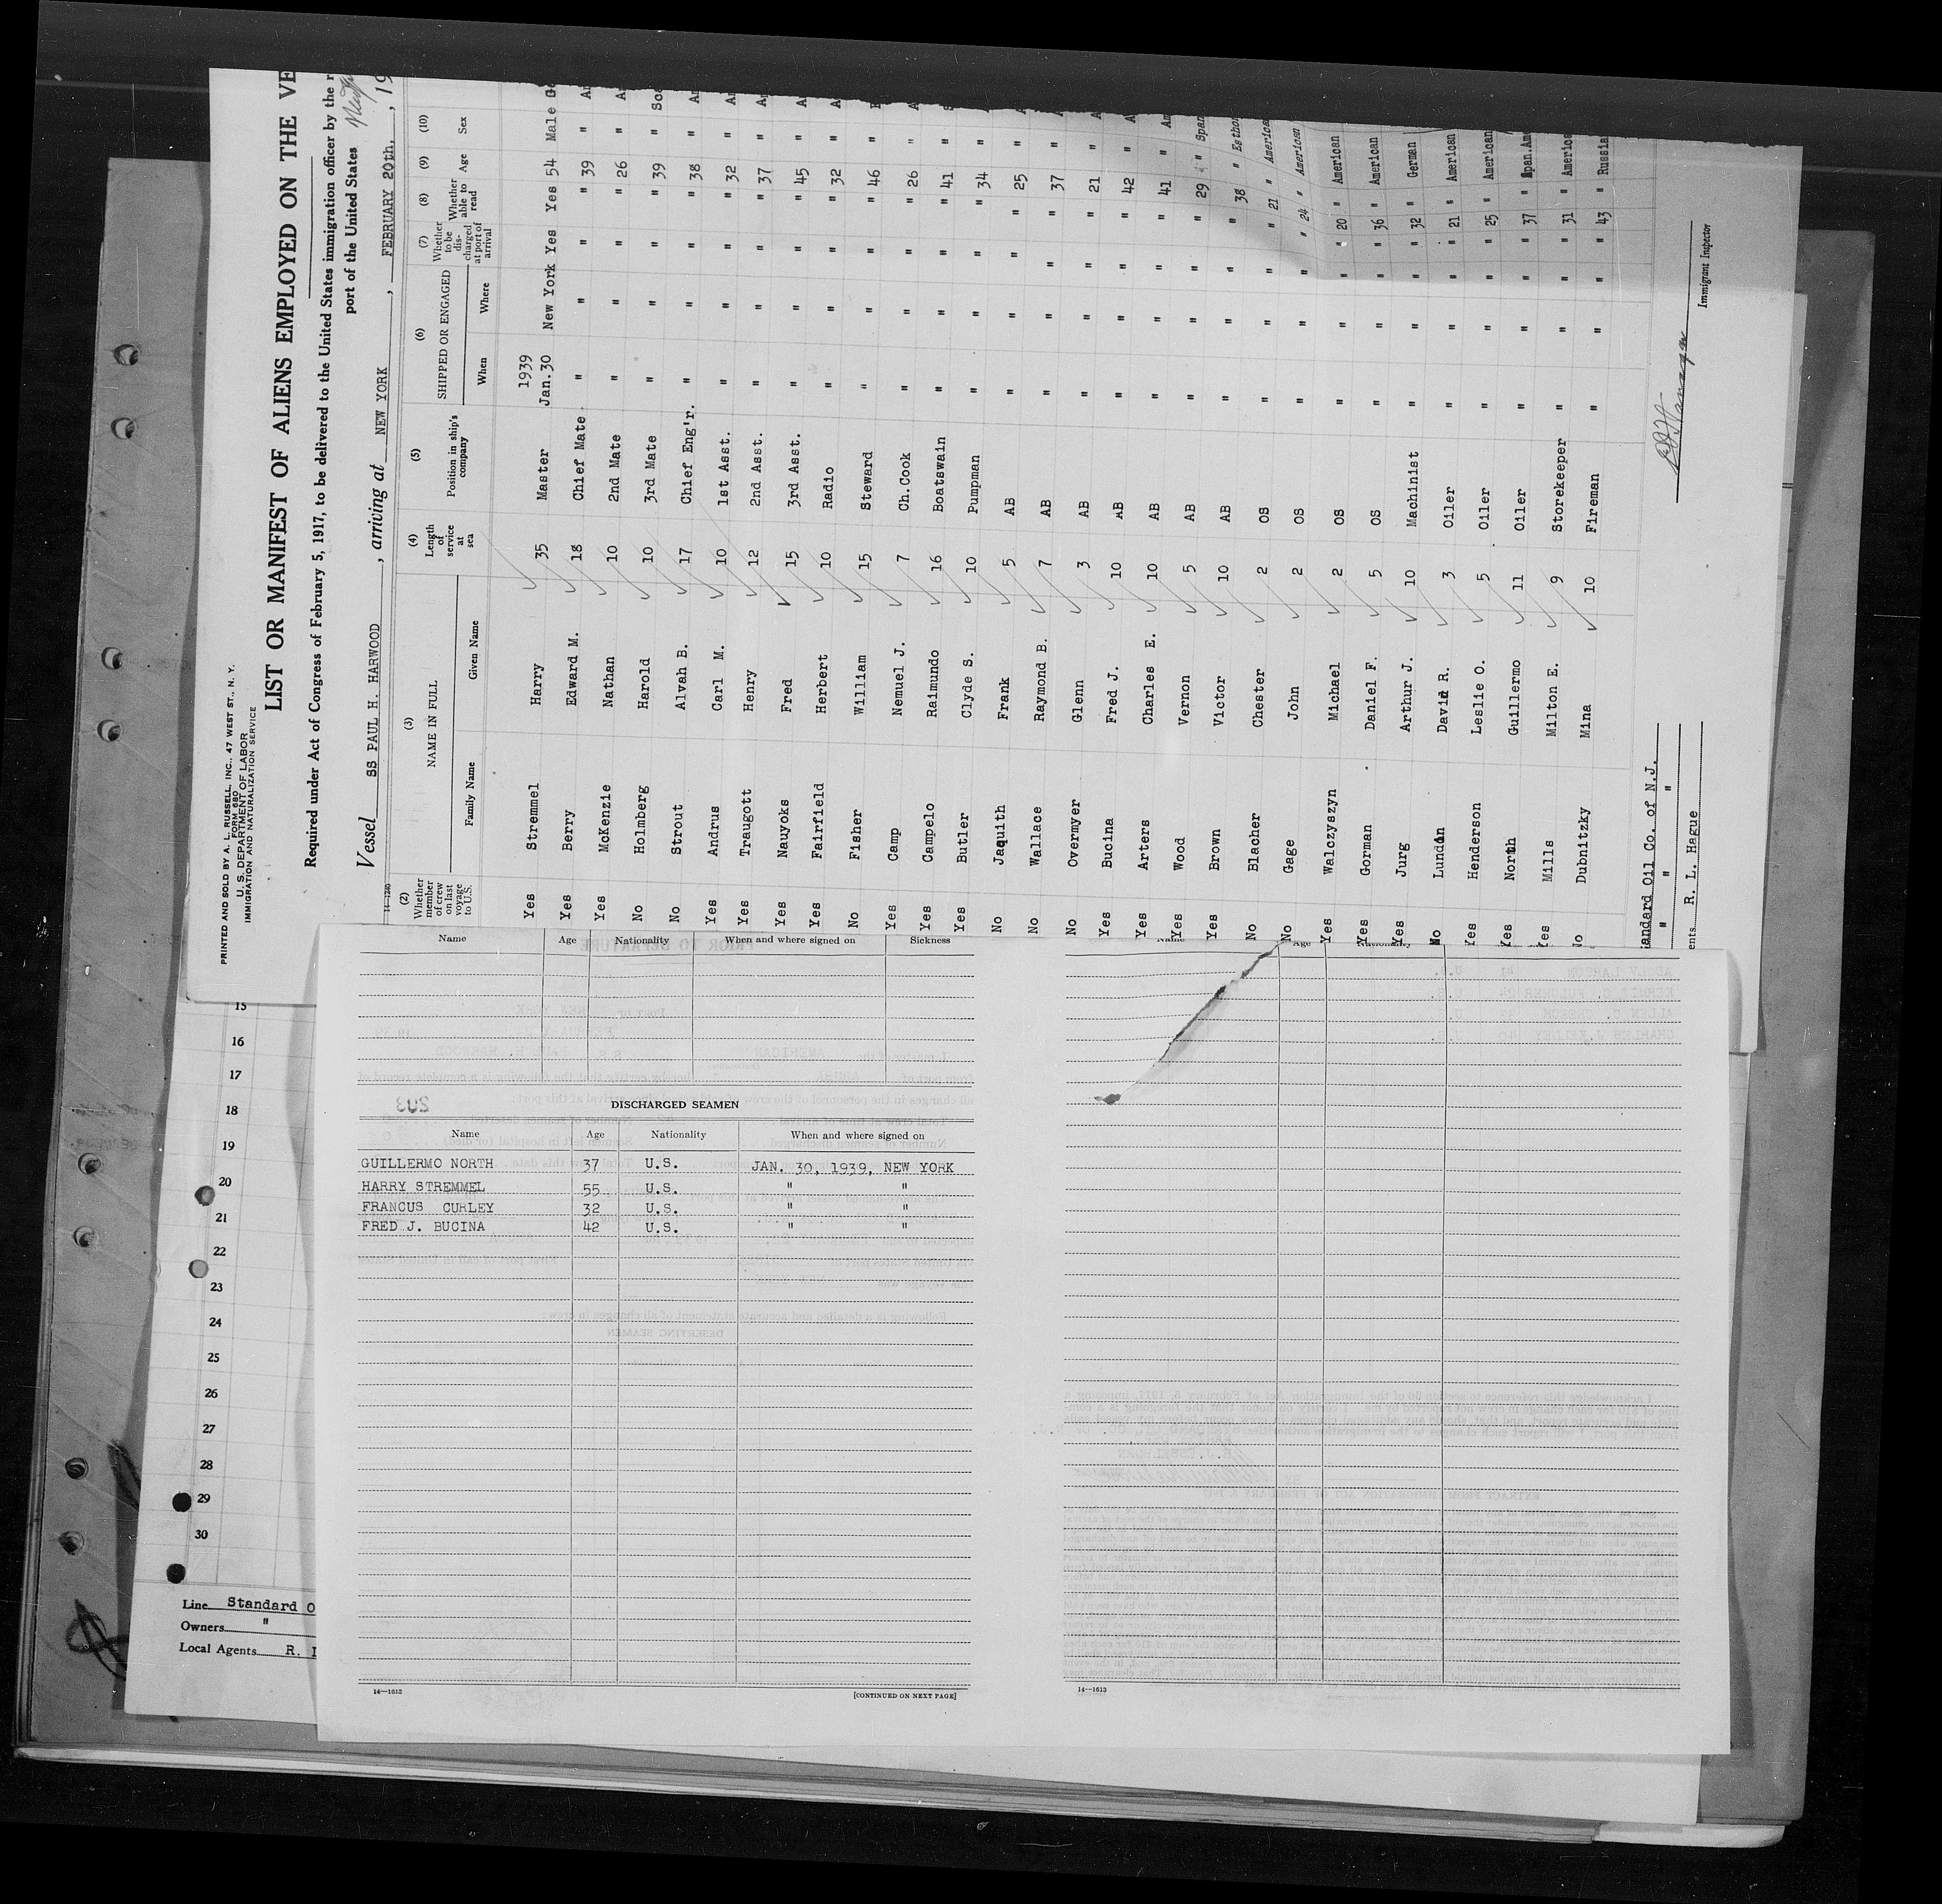 PRINTED AND SOLD BY A. L. RUSSELL, INC., 47 WEST ST., N. Y.
FORM 680
U. S. DEPARTMENT OF LABOR
IMMIGRATION AND NATURALIZATION SERVICE
LIST OR MANIFEST OF ALIENS EMPLOYED ON THE VE
Required under Act of Congress of February 5, 1917, to be delivered to the United States immigration officer by the r
port of the United States
Vessel SS PAUL H. HARWOOD , arriving at NEW YORK , FEBRUARY 20th. , 19
14-1240
(2) Whether member of crew on last voyage to U.S. (3) NAME IN FULL Family Name Given Name (4) Length of service at sea (5) Position in ship's company (6) SHIPPED OR ENGAGED When Where (7) Whether to be discharged at port of arrival (8) Whether able to read (9) Age (10) Sex
1939
Yes Stremmel Harry 35 Master Jan.30 New York Yes Yes 54 Male Ge
Yes Berry Edward M. 18 Chief Mate " " " " 39 " Am
Yes McKenzie Nathan 10 2nd Mate " " " " 26 " Am
No Holmberg Harold 10 3rd Mate " " " " 39 " Sca
No Strout Alvah B. 17 Chief Eng'r. " " " " 38 " Am
Yes Andrus Carl M. 10 1st Asst. " " " " 32 " Am
Yes Traugott Henry 12 2nd Asst. " " " " 37 " Am
Yes Nauyoks Fred 15 3rd Asst. " " " " 45 " A
Yes Fairfield Herbert 10 Radio " " " " 32 " A
No Fisher William 15 Steward " " " " 46 "
Yes Camp Nemuel J. 7 Ch.Cook " " " " 26 " A
Yes Campelo Raimundo 16 Boatswain " " " " 41 "
Yes Butler Clyde S. 10 Pumpman " " " " 34 " A
No Jaquith Frank 5 AB " " " " 25 "
No Wallace Raymond B. 7 AB " " " " 37 "
No Overmyer Glenn 3 AB " " " " 21 " A
Yes Bucina Fred J. 10 AB " " " " 42 " A
Yes Arters Charles E. 10 AB " " " " 41 " Am
Yes Wood Vernon 5 AB " " " " 29 " Span
Yes Brown Victor 10 AB " " " " 38 " Esthon
No Blacher Chester 2 OS " " " " 21 " America
No Gage John 2 OS " " " " 24 " American
Yes Walczyszyn Michael 2 OS " " " " 20 " American
Yes Gorman Daniel F. 5 OS " " " " 36 " American
Yes Jurg Arthur J. 10 Machinist " " " " 32 " German
No Lundin David R. 3 Oiler " " " " 21 " American
Yes Henderson Leslie O. 5 Oiler " " " " 25 " American
Yes North Guillermo 11 Oiler " " " " 37 " Span.Am
Yes Mills Milton E. 9 Storekeeper " " " " 31 " America
No Dubnitzky Mina 10 Fireman " " " " 43 " Russia
andard Oil Co. of N.J.
" " "
ents R. L. Hague
Immigrant Inspector
Name Age Nationality When and where signed on Sickness
DISCHARGED SEAMEN
Name Age Nationality When and where signed on
GUILLERMO NORTH 37 U.S. JAN. 30, 1939, NEW YORK
HARRY STREMMEL 55 U.S. " "
FRANCUS CURLEY 32 U.S. " "
FRED J. BUCINA 42 U.S. " "
14—1613
[CONTINUED ON NEXT PAGE]
Name Age Nationality
14—1613
15
16
17
18
19
20
21
22
23
24
25
26
27
28
29
30
Line Standard O
Owners "
Local Agents R. L